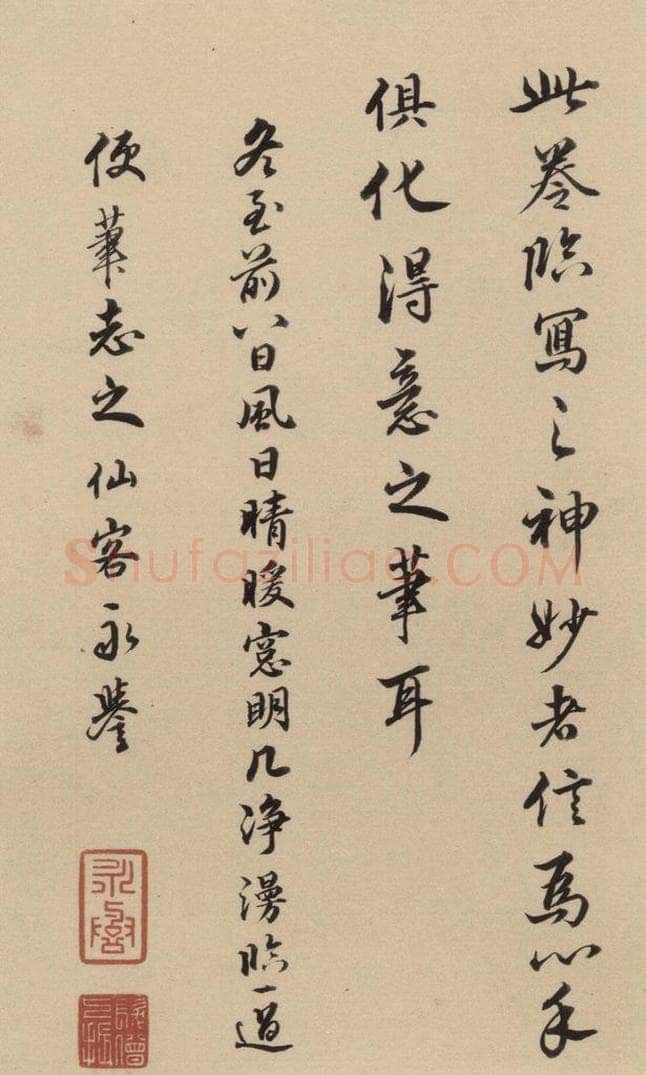 此卷临寫之神妙者信為心手
俱化得意之筆耳
冬至前八日風日晴暖窓明几淨漫临一過
便筆志之仙客永譽
Shufaziliao.COM
永譽